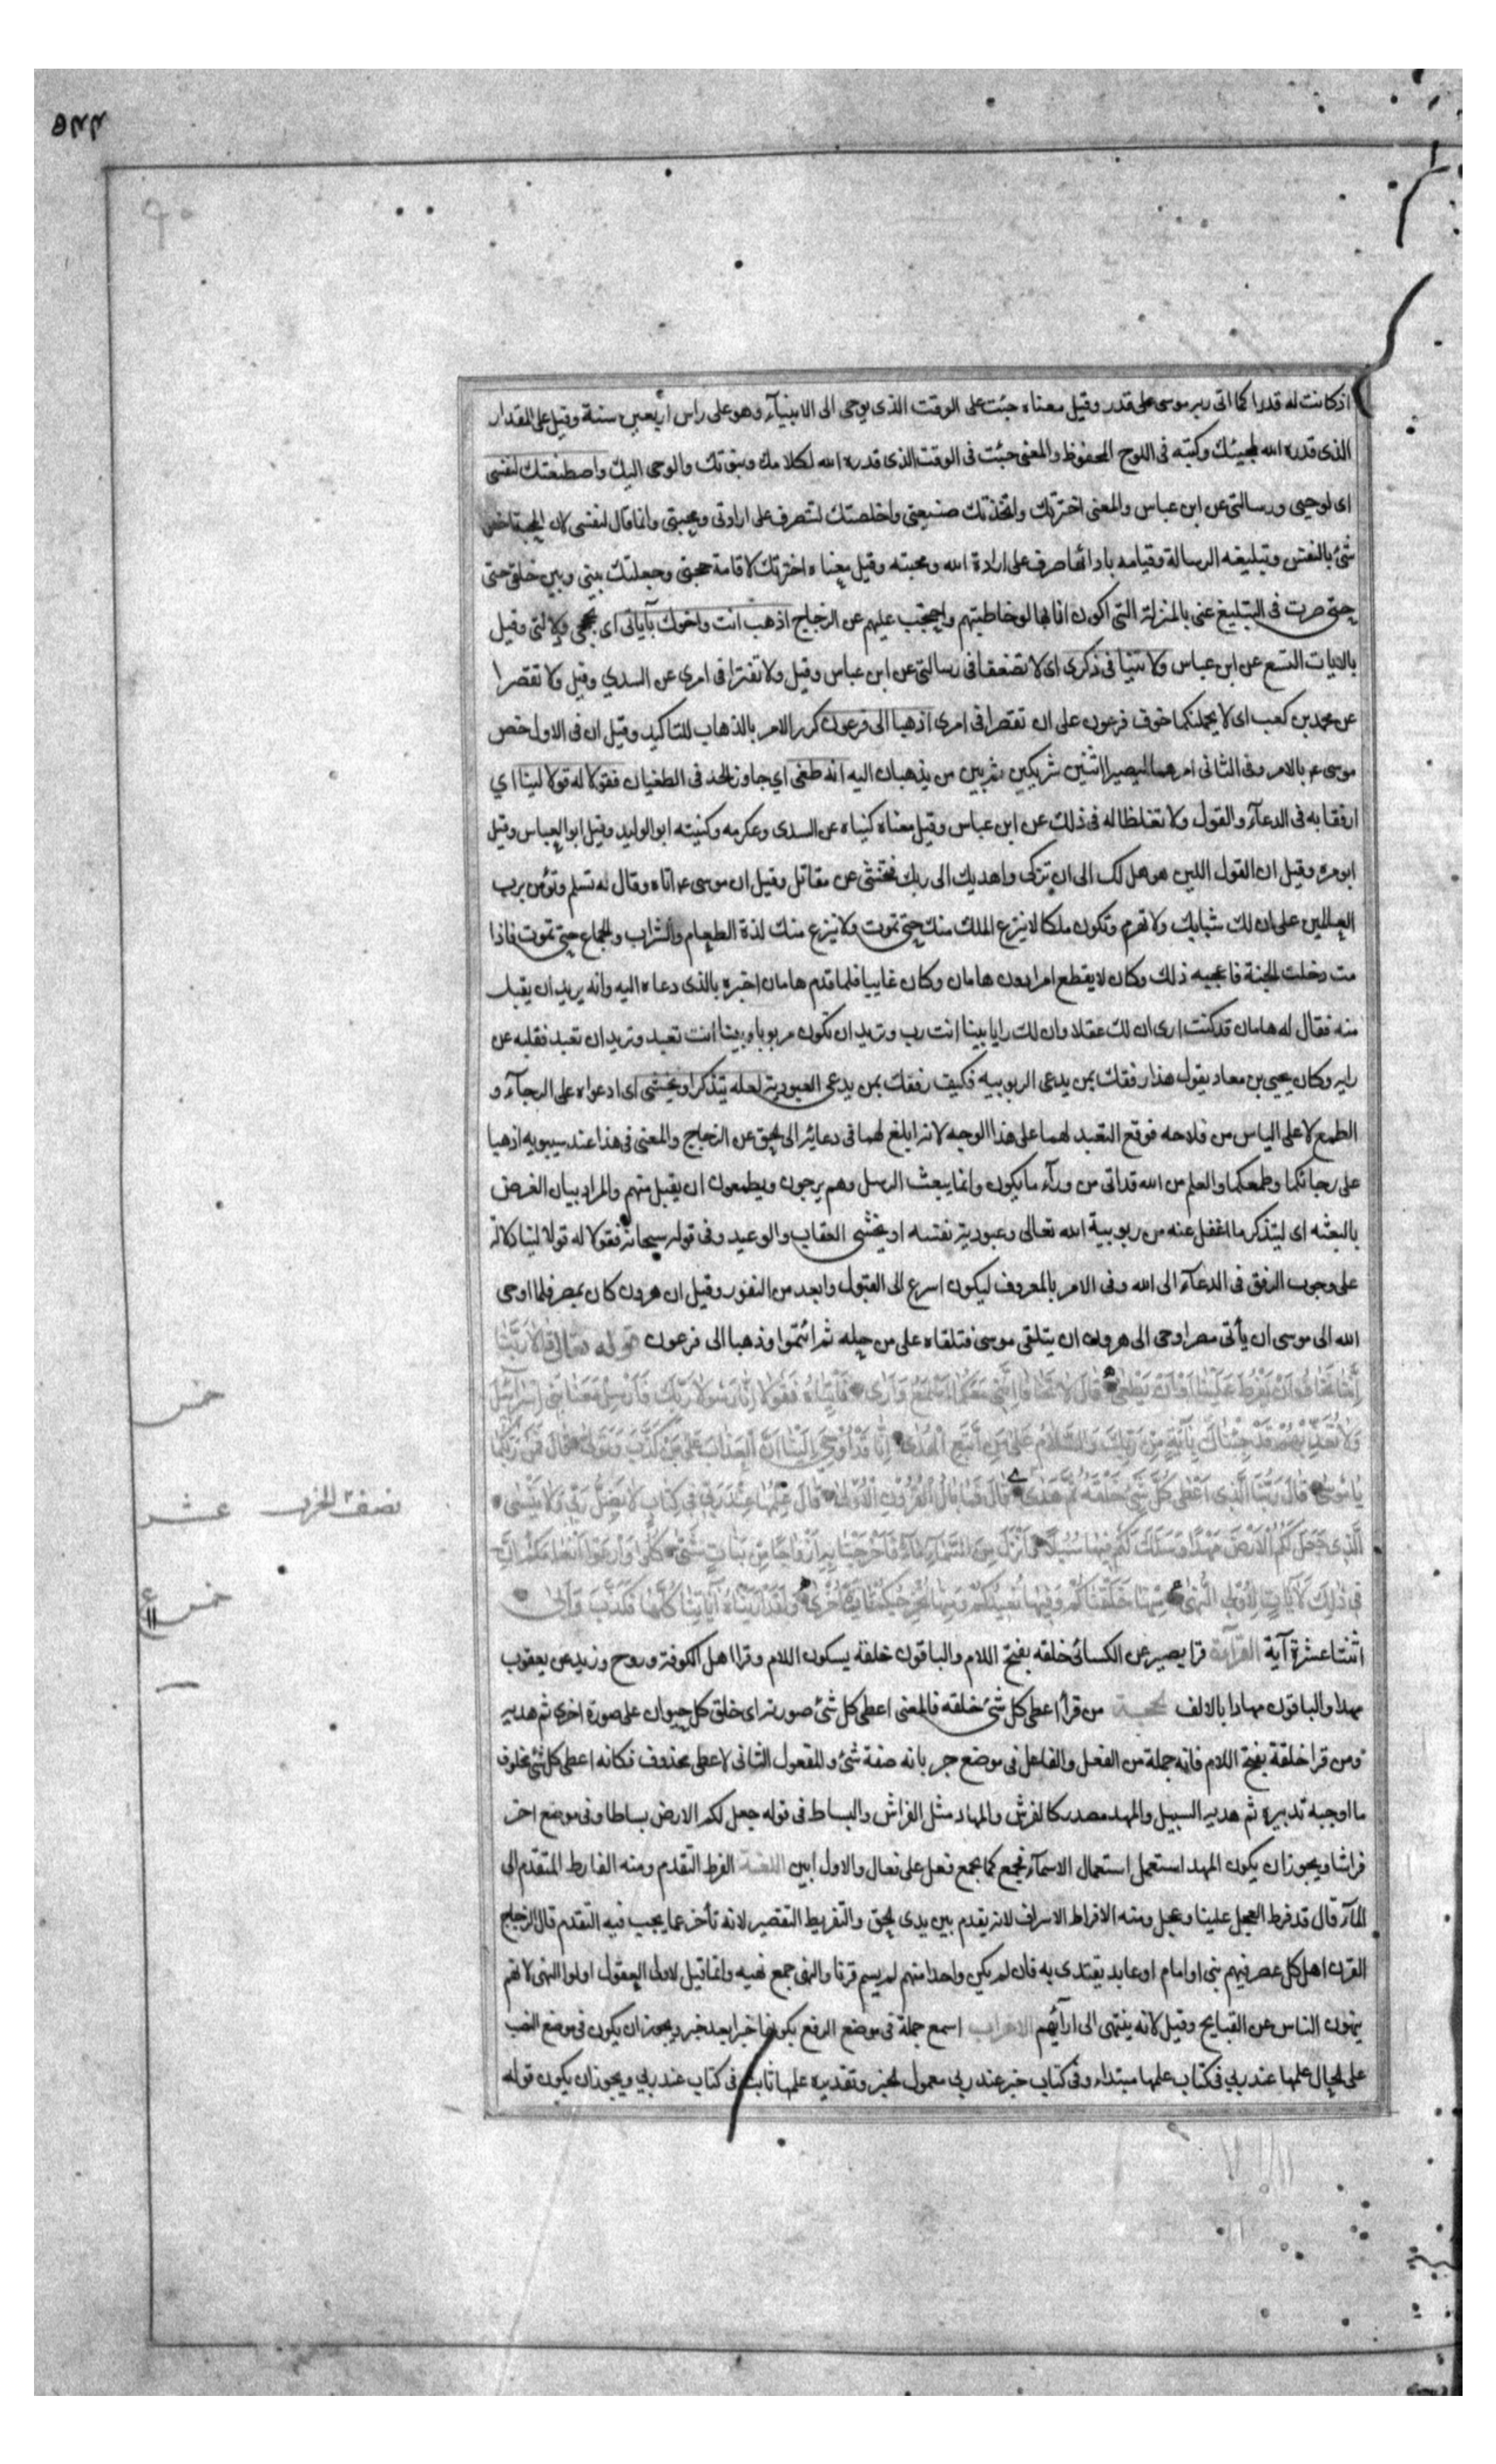 اذ كانت له قدرا كما اتى ربه موسى على قدر وقيل معناه جئت على الوقت الذى يوحى الى الانبيآء وهو على راس اربعين سنة وقيل على المقدار
الذى قدره الله لمجيئك وكتبه فى اللوح المحفوظ والمعنى جئت فى الوقت الذى قدره الله لكلامك ونبوتك والوحى اليك واصطنعتك لنفسى
اى لوحيى ورسالتى عن ابن عباس والمعنى اخترتك واتخذتك صنيعتى واخلصتك لتتصرف على ارادتى ومحبتى وانما قال لنفسى لان المحبة اخص
شئ بالنفس وتبليغه الرسالة وقيامه بادائها تصرف على ارادة الله ومحبته وقيل معناه اخترتك لاقامة حجتى وجعلتك بينى وبين خلقى حتى
حتى صرت فى التبليغ عنى بالمنزلة التى اكون انا بها لو خاطبتهم واحتججت عليهم عن الزجاج اذهب انت واخوك بآياتى اى بحججى ودلالتى وقيل
بالايات التسع عن ابن عباس ولا تنيا فى ذكرى اى لا تضعفا فى رسالتى عن ابن عباس وقيل ولا تفترا فى امرى عن السدي وقيل ولا تقصرا
عن محمد بن كعب اى لا يحملنكما خوف فرعون على ان تقصرا فى امرى اذهبا الى فرعون كرر الامر بالذهاب للتاكيد وقيل ان فى الاول خص
موسى ع بالامر وفى الثانى امرهما ليصيرا اثنين شريكين ثم بين من يذهبان اليه انه طغى اي جاوز الحد فى الطغيان فقولا له قولا لينا اي
ارفقا به فى الدعآء والقول ولا تغلظا له فى ذلك عن ابن عباس وقيل معناه كنياه عن السدى وعكرمه وكنيته ابو الوليد وقيل ابو العباس وقيل
ابو مره وقيل ان القول اللين هو هل لك الى ان تزكى واهديك الى ربك فتخشى عن مقاتل وقيل ان موسى ع اتاه وقال له تسلم وتؤمن برب
العالمين على ان لك شبابك ولا تهرم وتكون ملكا لا ينزع الملك منك حتى تموت ولا ينزع منك لذة الطعام والشراب والجماع حتى تموت فاذا
مت دخلت الجنة فاعجبه ذلك وكان لا يقطع امرا دون هامان وكان غايبا فلما قدم هامان اخبره بالذى دعاه اليه وانه يريد ان يقبل
منه فقال له هامان قد كنت ارى ان لك عقلا وان لك رايا بينا انت رب وتريد ان تكون مربوبا وبينا انت تعبد وتريد ان تعبد فقلبه عن
رايه وكان يحيى بن معاد يقول هذا رفقك بمن يدعى الربوبيه فكيف رفقك بمن يدعى العبودية لعله يتذكر او يخشى اى ادعواه على الرجآء و
الطمع لا على الياس من فلاحه فوقع التعبد لهما على هذا الوجه لانه ابلغ لهما فى دعائه الى الحق عن الزجاج والمعنى فى هذا عند سيبويه اذهبا
على رجائكما وطمعكما والعلم من الله قد اتى من ورآء ما يكون وانما يبعث الرسل وهم يرجون ويطمعون ان يقبل منهم والمراد بيان الغرض
بالبعثه اى ليتذكر ما اغفل عنه من ربوبية الله تعالى وعبودية نفسه او يخشى العقاب والوعيد وفى قوله سبحانه فقولا له قولا لينا دلالة
على وجوب الرفق فى الدعآء الى الله وفى الامر بالمعروف ليكون اسرع الى القبول وابعد من النفور وقيل ان هرون كان بمصر فلما اوحى
الله الى موسى ان يأتى مصر اوحى الى هرون ان يتلقى موسى فتلقاه على مرحله ثم ائتمرا وذهبا الى فرعون قوله تعالى قالا ربنا
اننا نخاف ان يفرط علينا او ان يطغى قال لا تخافا اننى معكما اسمع وارى فأتياه فقولا انا رسولا ربك فارسل معنا بنى اسرائيل
ولا تعذبهم قد جئناك بآية من ربك والسلام على من اتبع الهدى انا قد اوحى الينا ان العذاب على من كذب وتولى قال فمن ربكما
يا موسى قال ربنا الذى اعطى كل شئ خلقه ثم هدى قال فما بال القرون الاولى قال علمها عند ربى فى كتاب لا يضل ربى ولا ينسى
الذى جعل لكم الارض مهدا وسلك لكم فيها سبلا وانزل من السمآء مآء فاخرجنا به ازواجا من نبات شتى كلوا وارعوا انعامكم ان
فى ذلك لآيات لاولى النهى منها خلقناكم وفيها نعيدكم ومنها نخرجكم تارة اخرى ولقد اريناه آياتنا كلها فكذب وابى
اثنتا عشرة آية القرآءة قرا بصير عن الكسائى خلقه بفتح اللام والباقون خلقه بسكون اللام وقرا اهل الكوفة وروح وزيد عن يعقوب
مهدا والباقون مهادا بالالف الحجة من قرأ اعطى كل شئ خلقه فالمعنى اعطى كل شئ صورته اى خلق كل حيوان على صورة اخرى ثم هديه
ومن قرا خلقه بفتح اللام فانه جملة من الفعل والفاعل فى موضع جر بانه صفة شئ والمفعول الثانى لاعطى محذوف فكانه اعطى كل شئ مخلوق
ما اوجبه تدبيره ثم هديه السبيل والمهد مصدر كالفرش والمهاد مثل الفراش والبساط فى قوله جعل لكم الارض بساطا وفى موضع اخر
فراشا ويجوز ان يكون المهد استعمل استعمال الاسمآء فجمع كما يجمع فعل على فعال والاول ابين اللغة الفرط التقدم ومنه الفارط المتقدم الى
المآء قال قد فرط العجل علينا وعجل ومنه الافراط الاسراف لانه يقدم بين يدى الحق والتفريط التقصير لانه تأخر عما يجب فيه التقدم قال الزجاج
القرن اهل كل عصر فيهم نبى او امام او عابد يقتدى به فان لم يكن واحدا منهم لم يسم قرنا والنهى جمع نهيه وانما قيل لاولى العقول اولوا النهى لانهم
ينهون الناس عن القبايح وقيل لانه ينتهى الى ارآئهم الاعراب اسمع جملة فى موضع الرفع بكونها خبرا بعد خبر ويجوز ان يكون فى موضع النصب
على الحال علمها عند ربي فى كتاب علمها مبتداء وفى كتاب خبر عند ربى معمول الخبر وتقديره علمها ثابت فى كتاب عند ربي ويجوز ان يكون قوله
خمس
نصف الحزب عشر
خمس